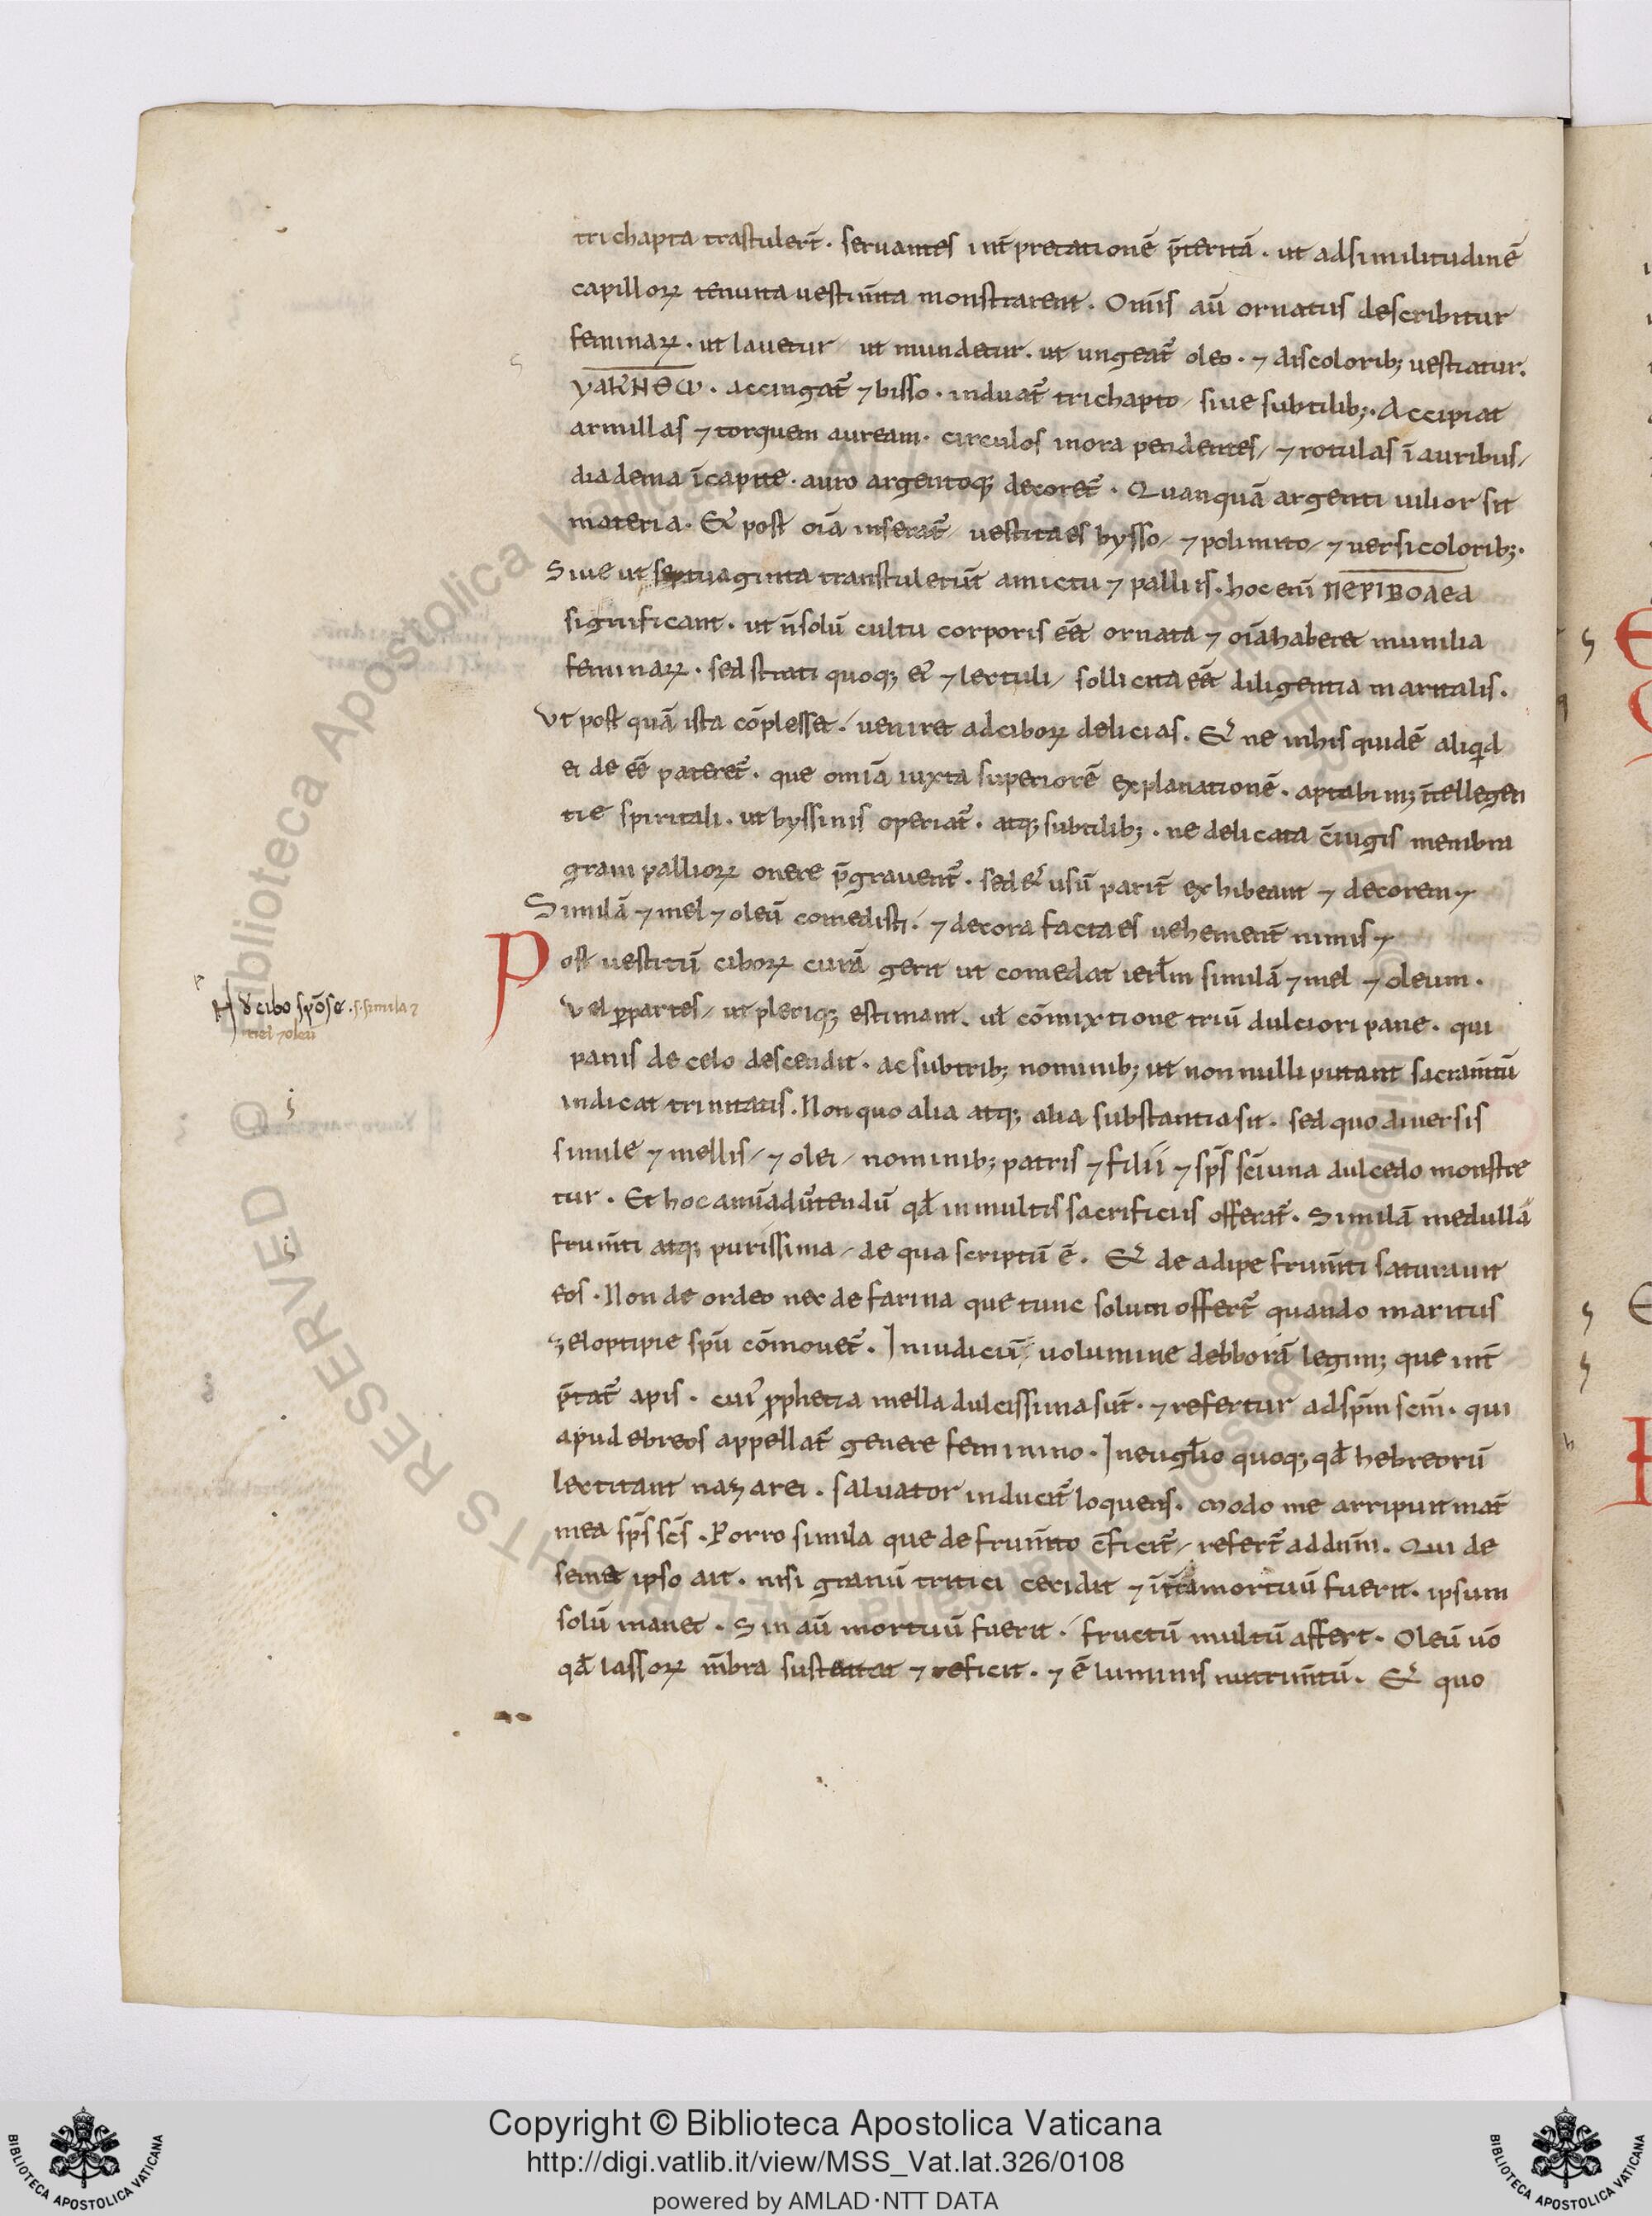 trichapta trastulert̄. seruantes int̄pretationē p̄teritā. ut adsimilitudinē
capilloꝝ tenuita uestim̄ta monstrarent. Om̄is aū ornatus describitur
feminaꝝ. ut lauetur ut mundetur. ut ungeat̄ oleo. ⁊ discolorib; uestiatur.
ẏAKHΘω. accingat̄ ⁊ bisso. induat̄ trichapto siue subtilib;. Accipiat
armillas ⁊ torquem auream. circulos inora pendentes, ⁊ rotulas ī auribus,
diadema ī capite. auro argentoq; decoret̄. Quanquā argenti uilior sit
materia. Et post oīa inserat̄, uestita es bysso, ⁊ polimito, ⁊ uersicolorib;.
Siue ut septuaginta transtulerūt amictu ⁊ palliis. hoc enī ΠΕΡΙΒΟΛΕΑ
significant. ut n̄ solū cultu corporis eēt ornata ⁊ oīa haberet munilia
feminaꝝ. sed strati quoq; et ⁊ lectuli, sollicita eēt diligentia maritalis.
Vt post quā ista cōplesset, ueniret ad ciboꝝ delicias. Et ne inhis quidē aliqid
ei de eē pateret̄. que omīa iuxta superiorē explanationē. aptabim; ītellegen
tie spiritali. ut byssinis operiat̄. atq; subtilib;. ne delicata c̄iugis membra
graui palliorꝝ onere p̄grauent̄. sed et usū parit̄ exhibeant ⁊ decorem ⁊
Similā ⁊ mel ⁊ oleū comedisti, ⁊ decora facta es uehement̄ nimis ⁊
Post uestitū ciboꝝ curā gerit ut comedat ierl̄m similā ⁊ mel ⁊ oleum.
Vel ꝑpartes, ut pleriq; estimant. ul̄ cōmixtione triū dulciori pane. qui
panis de celo descendit. ac subtrib; nominib; ut nonnulli putant sacram̄tū
indicat trinitatis. Non quo alia atq; alia substantia sit. sed quo diuersis
simile ⁊ mellis, ⁊ olei, nominib; patris ⁊ filii ⁊ sp̄s sc̄i una dulcedo monstre
tur. Et hoc animaduertendū qd̄ in multis sacrificiis offerat̄. Similā medullā
frum̄ti atq; purissima, de qua scriptū ē. Et de adipe frum̄ti saturauit
eos. Non de ordeo nec de farina que tunc solum offert̄ quando maritus
zeloptipie sp̄u cōmouet̄. In iudicū uolumine debborā legim; que int̄
p̄tat̄ apis. cui' ꝓphetia mella dulcissima sūt. ⁊ refertur ad sp̄m scm̄. qui
apud ebreos appellat̄ genere feminino. In eugl̄io quoq; qd̄ hebreorū
lectitant nazarei. saluator inducit̄ loquens. modo me arripuit mat̄
mea sp̄s sc̄s. Porro simila que de frum̄to c̄ficit̄, refert̄ ad dn̄m. Qui de
semet ipso ait. nisi granū tritici cecidit ⁊ ī tr̄a mortuū fuerit. ipsum
solū manet. Sin aū mortuū fuerit. fructū multū affert. Oleū uo
qd̄ lassoꝝ m̄bra sustentat ⁊ reficit. ⁊ ē luminis nutrim̄tū. Et quo
cibo spōse .s. simila ⁊
mel ⁊ oleū
Copyright © Biblioteca Apostolica Vaticana
http://digi.vatlib.it/view/MSS_Vat.lat.326/0108
powered by AMLAD·NTT DATA
BIBLIOTECA APOSTOLICA VATICANA
BIBLIOTECA APOSTOLICA VATICANA